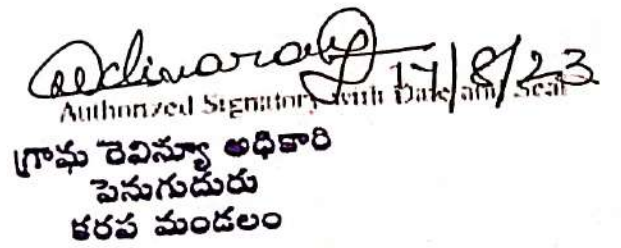 17/8/23
Authorized Signatory with Date and Seal
గ్రామ రెవిన్యూ అధికారి
పెనుగుదురు
కరప మండలం